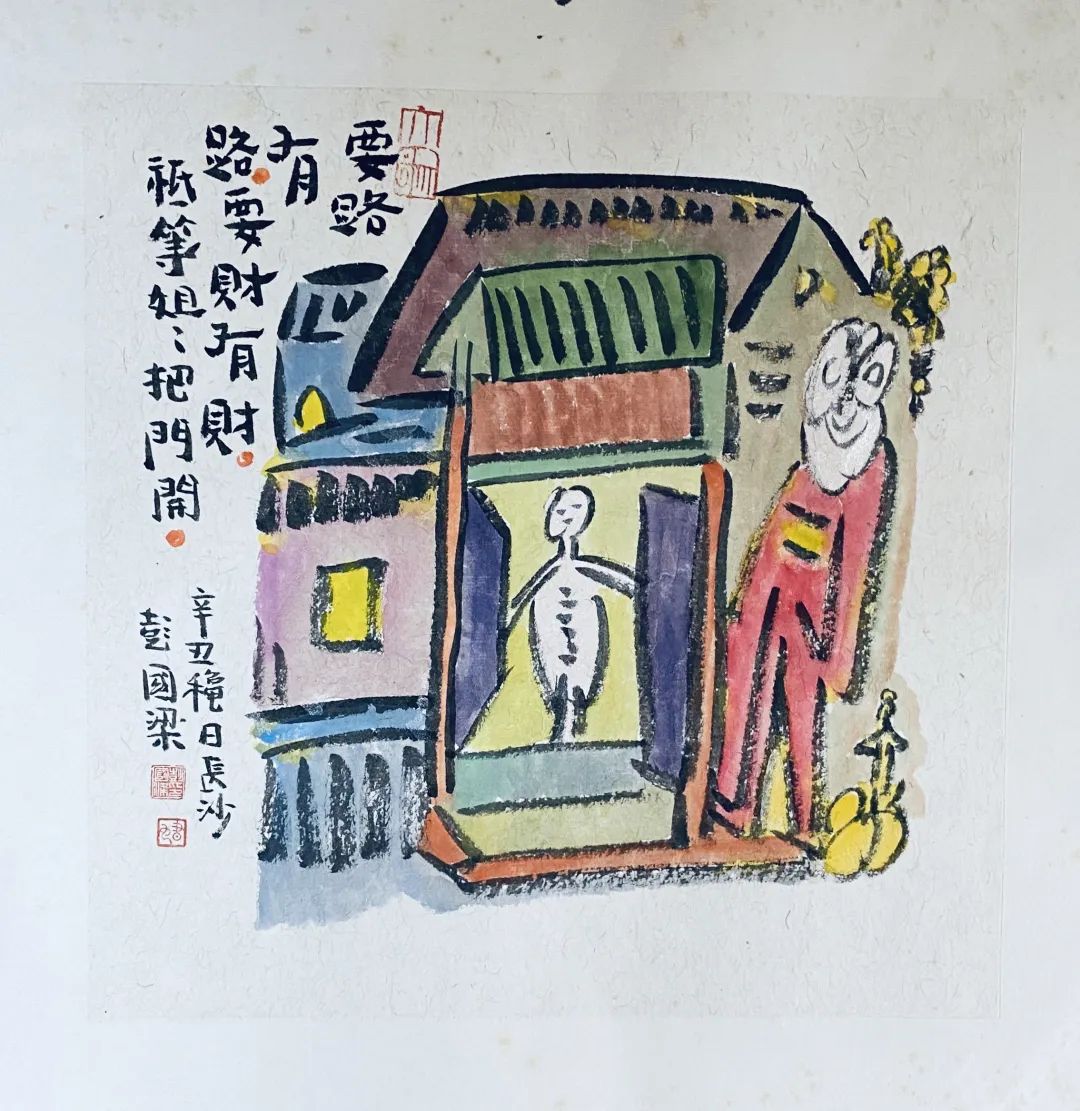 要路
有
路要財有財
祗等姐〻把門開
辛丑穐日長沙
彭國梁